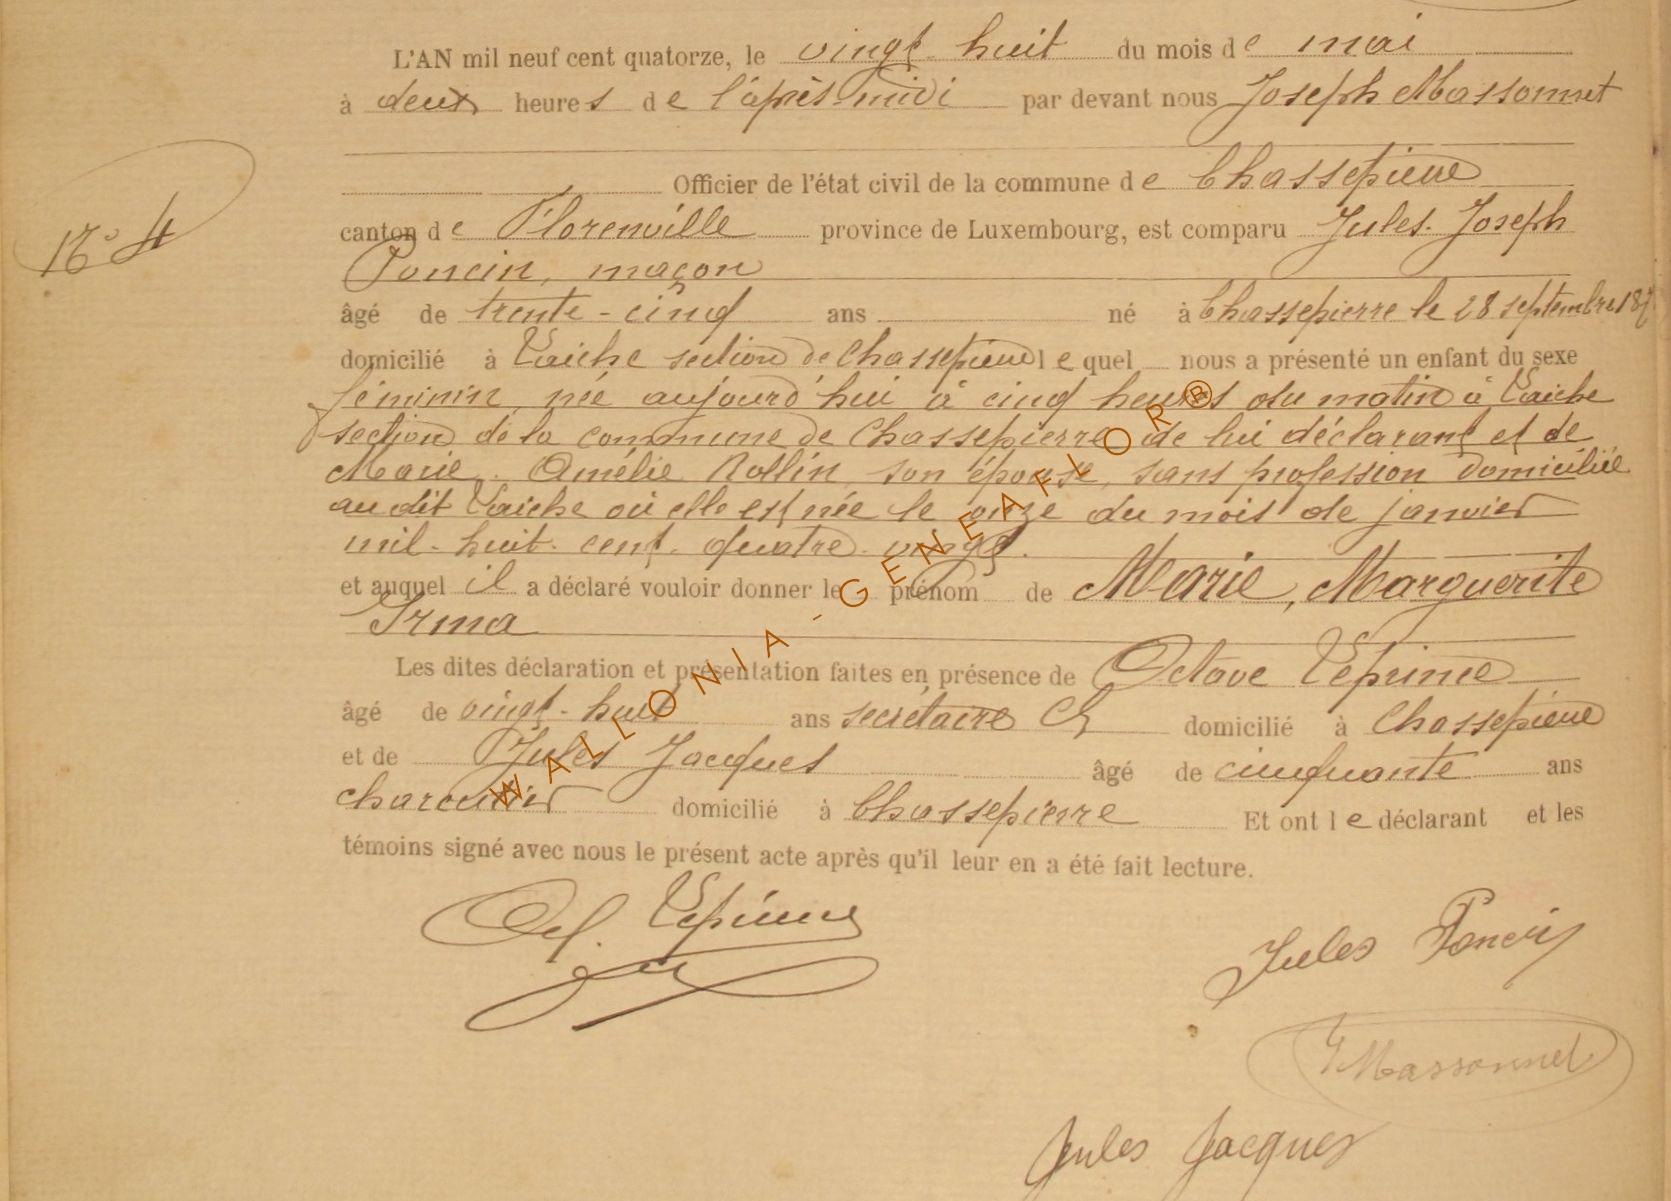 L'AN mil neuf cent quatorze, le vingt-huit du mois de mai
à deux heures de l'après-midi par devant nous Joseph Massonnet
Officier de l'état civil de la commune de Chassepierre
canton de Florenville province de Luxembourg, est comparu Jules-Joseph
N° 4
Poncin, maçon
âgé de trente-cinq ans né à Chassepierre le 28 septembre 187
domicilié à Laiche section de Chassepierre lequel nous a présenté un enfant du sexe
féminin, née aujourd'hui à cinq heures du matin à Laiche
section de la commune de Chassepierre de lui déclarant et de
Marie Amélie Rollin, son épouse, sans profession domiciliée
au dit Laiche où elle est née le onze du mois de janvier
mil-huit-cent-quatre-vingt.
et auquel il a déclaré vouloir donner le prénom de Marie, Marguerite
Irma
Les dites déclaration et présentation faites en présence de Octave Leprince
âgé de vingt-huit ans secrétaire domicilié à Chassepierre
et de Jules Jacques âgé de cinquante ans
charcutier domicilié à Chassepierre Et ont le déclarant et les
témoins signé avec nous le présent acte après qu'il leur en a été fait lecture.
Oct. Leprince
Jules Poncin
J Massonnet
Jules Jacques
WALLONIA-GENEAFLOR®